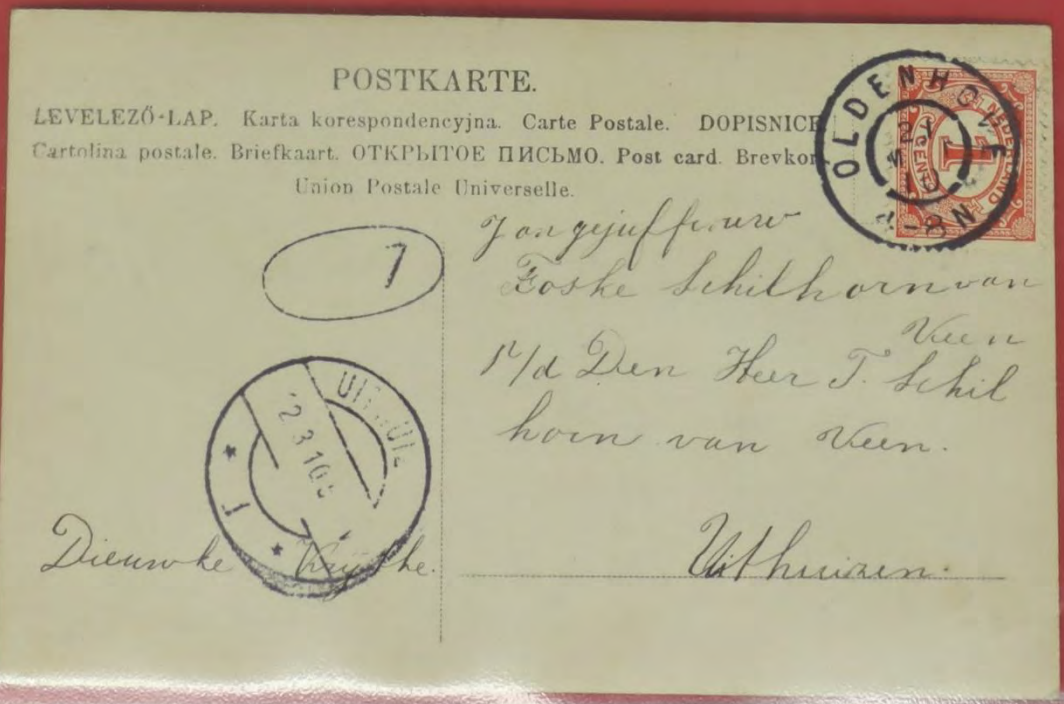 POSTKARTE.
LEVELEZŐ-LAP. Karta korespondencyjna. Carte Postale. DOPISNICE
Cartolina postale. Briefkaart. ОТКРЫТОЕ ПИСЬМО. Post card. Brevkort
Union Postale Universelle.
OLDENHOVE
21
10
4-8N
NEDERLAND
1
CENT
1
Jongejuffrouw
Foske Schilhorn van
Veen
p/d Den Heer T. Schil
horn van Veen.
Uithuizen.
12.3.10
1
Dieuwke